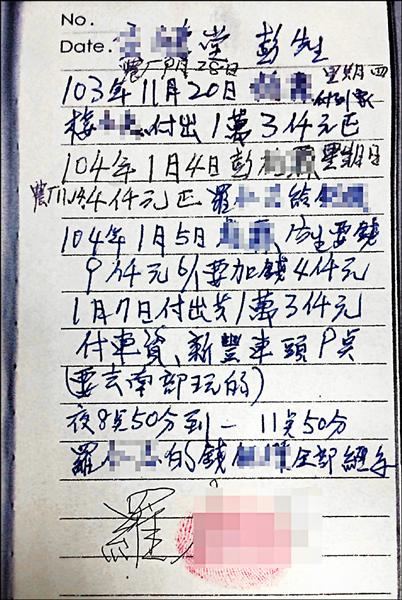 No.
Date. 堂 彭先生
農历 閏月28日 星期四
103年11月20日 付到家
樓 付出1萬3仟元正
104年1月4日彭 星期日
農11月 4仟元正 羅 給
104年1月5日 先生要錢
9仟元 要加錢4仟元
1月7日付出共1萬3仟元
付車資、新豐車頭P点
(要去南部玩的)
夜8点50分到－11点50分
羅 的錢 全部經手
羅